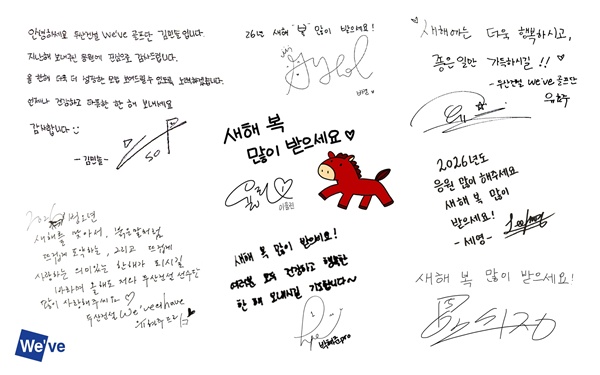 안녕하세요 두산건설 We've 골프단 김민솔입니다.
지난해 보내주신 응원에 진심으로 감사드립니다.
올 한해 더욱 더 성장한 모습 보여드릴 수 있도록 노력하겠습니다.
언제나 건강하고 따뜻한 한 해 보내세요
감사합니다
- 김민솔 -
50
26년 새해 "복" 많이 받으세요!
새해에는 더욱 행복하시고,
좋은일만 가득하시길!!
- 두산건설 We've 골프단
유효주
새해 복
많이 받으세요
이율린
2026년도
응원 많이 해주세요
새해 복 많이
받으세요!
- 세영 -
2026
새해를 맞아서, 붉은말처럼
뜨겁게 도약하는, 그리고 뜨겁게
사랑하는 의미있는 한해가 되시길
바라며 올해도 저와 두산건설 선수단
많이 사랑해주세요
두산건설 We've
새해 복 많이 받으세요!
여러분 모두 건강하고 행복한
한 해 보내시길 기원합니다~
박혜준pro
새해 복 많이 받으세요!
We've